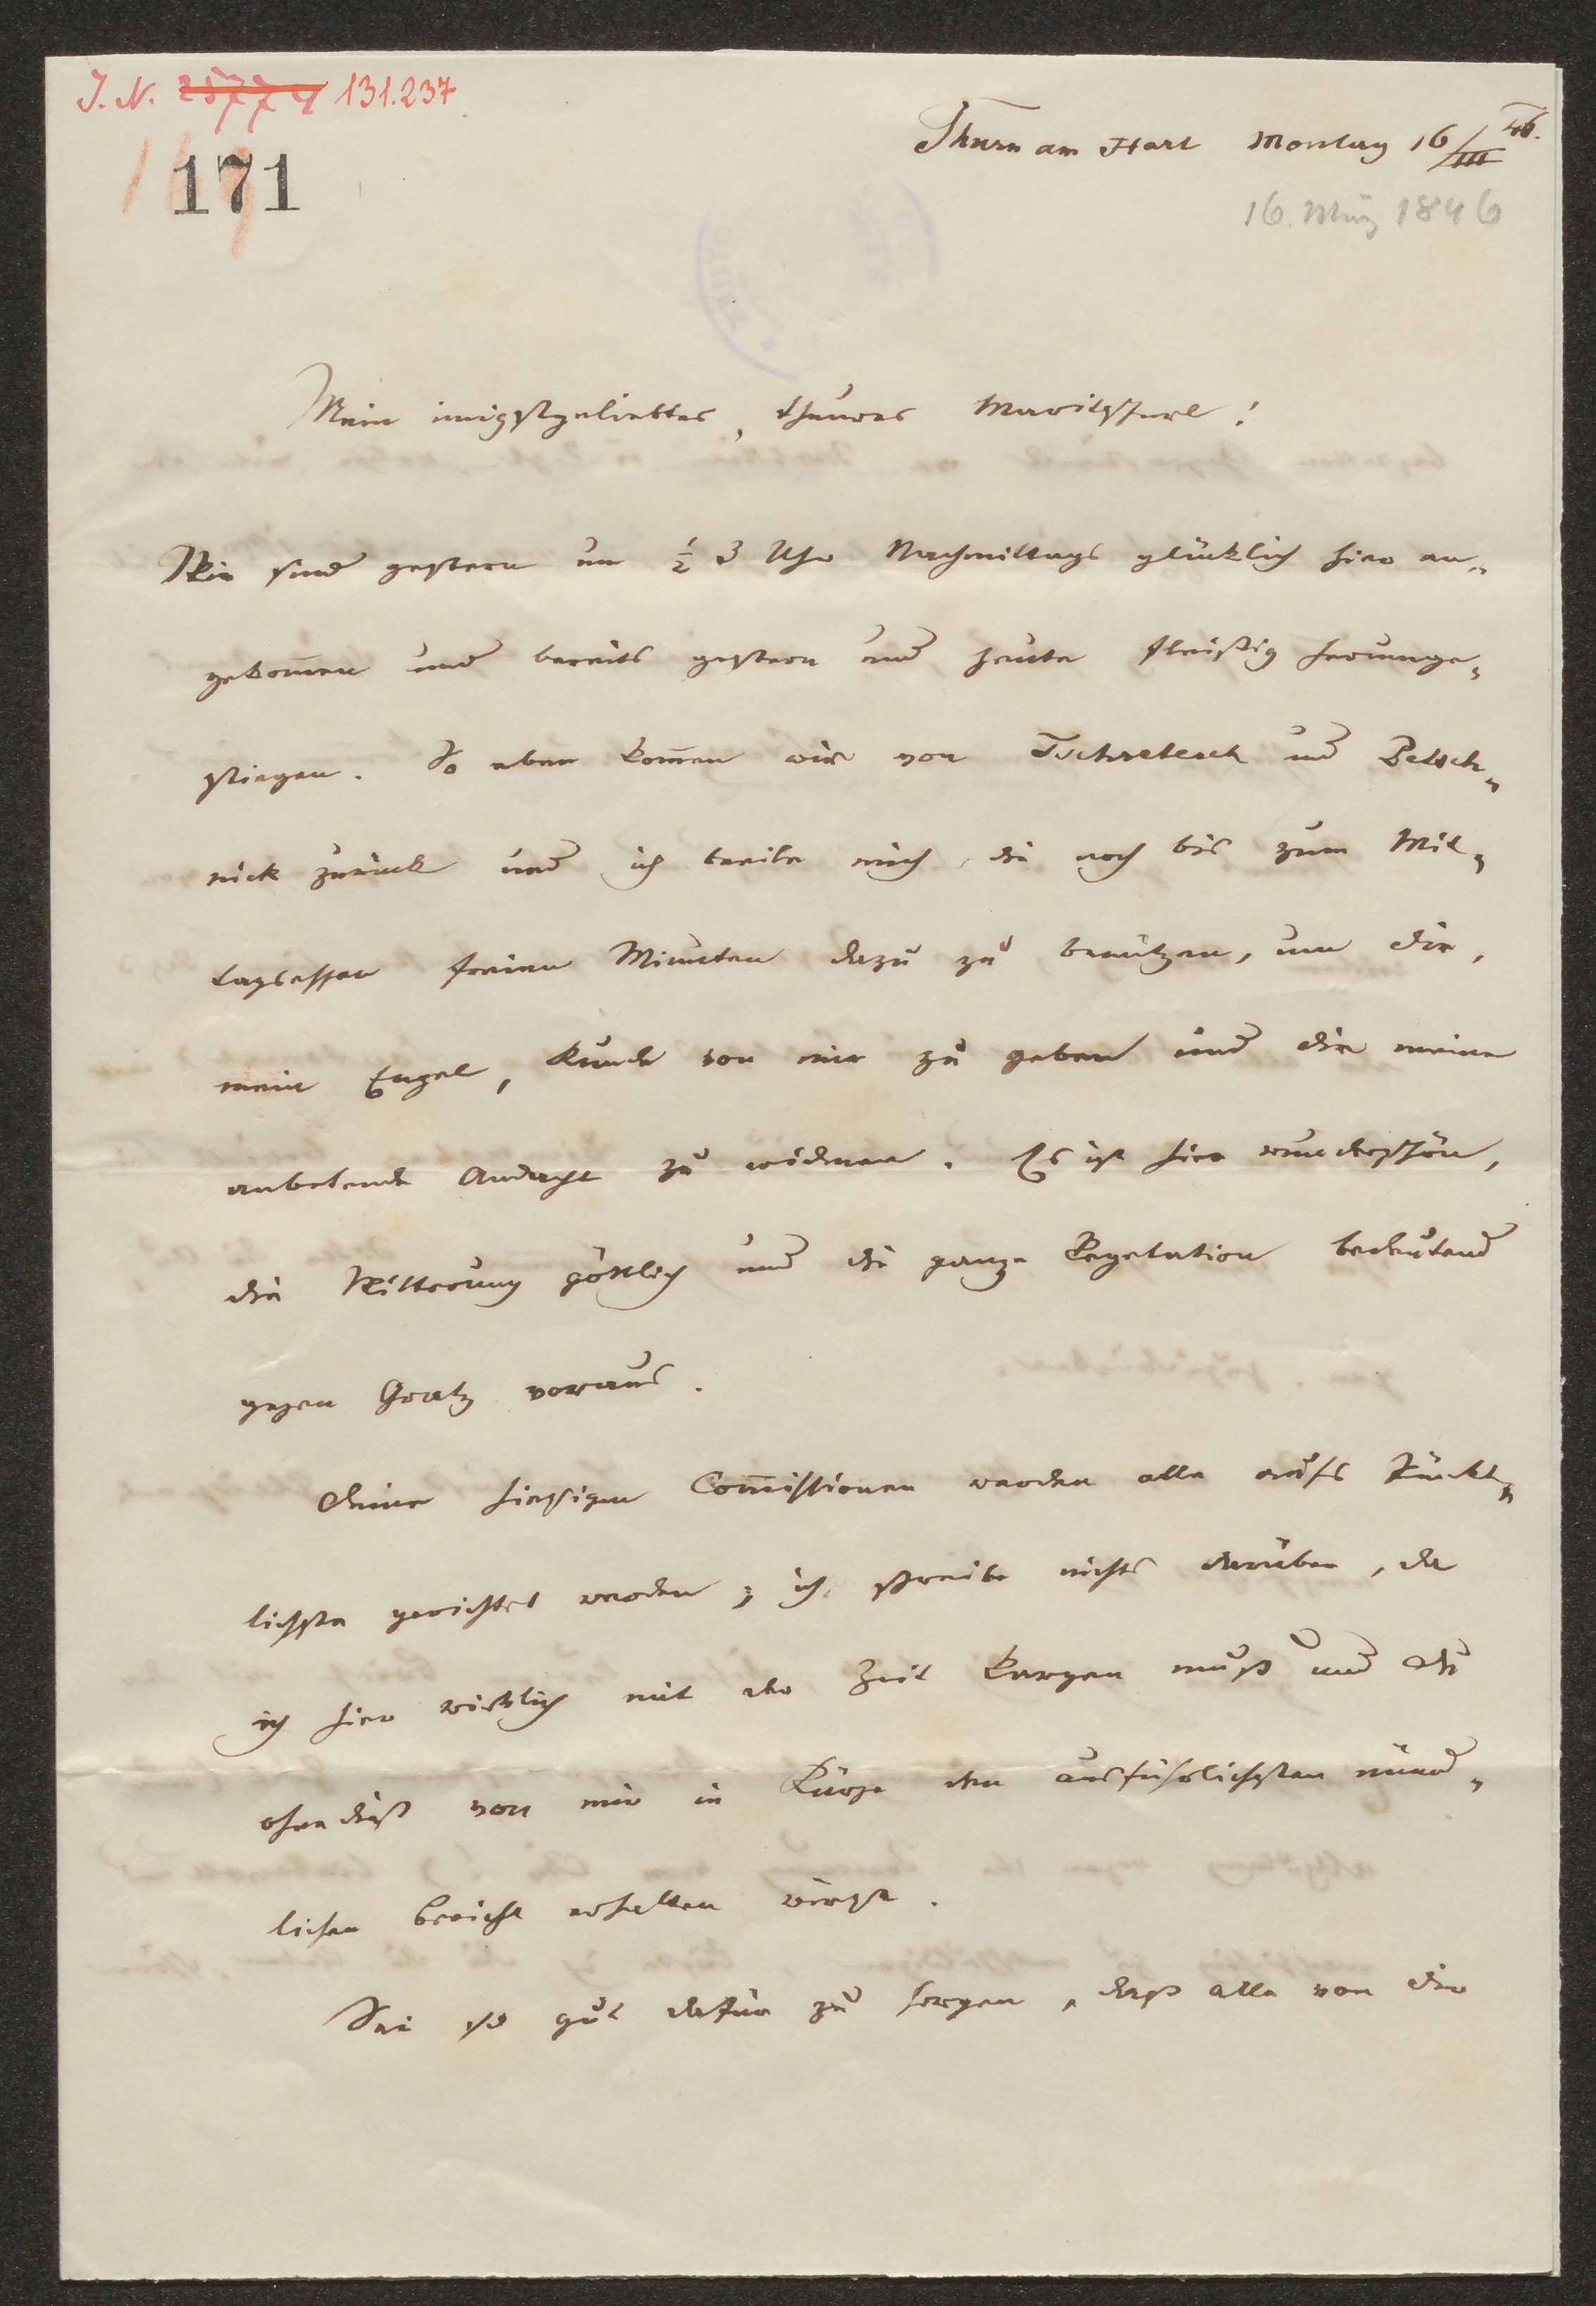 J. N. 25774 131.237
171
Thurn am Hart Montag 16/III 46.
16. März 1846
Mein innigstgeliebtes, theures Mariescherl!
Wir sind gestern um ½ 3 Uhr Nachmittags glücklich hier an-
gekom̄en und bereits gestern und heute fleißig herumge-
stiegen. So eben kom̄en wir von Tschretesch und Petsch-
nick zurück und ich beeile mich, die noch bis zum Mit-
tagsessen freien Minuten dazu zu benützen, um dir,
mein Engel, Kunde von mir zu geben und dir meine
anbetende Andacht zu widmen. Es ist hier wunderschön,
die Witterung göttlich und die ganze Vegetation bedeutend
gegen Gratz voraus.
Deine hiesigen Com̄issionen werden alle aufs Pünkt-
lichste gerichtet werden; ich schreibe nichts darüber, da
ich hier wirklich mit der Zeit kargen muß und du
ohnedieß von mir in Kürze den ausführlichsten münd-
lichen Bericht erhalten wirst.
Sei so gut dafür zu sorgen, daß alle von dir